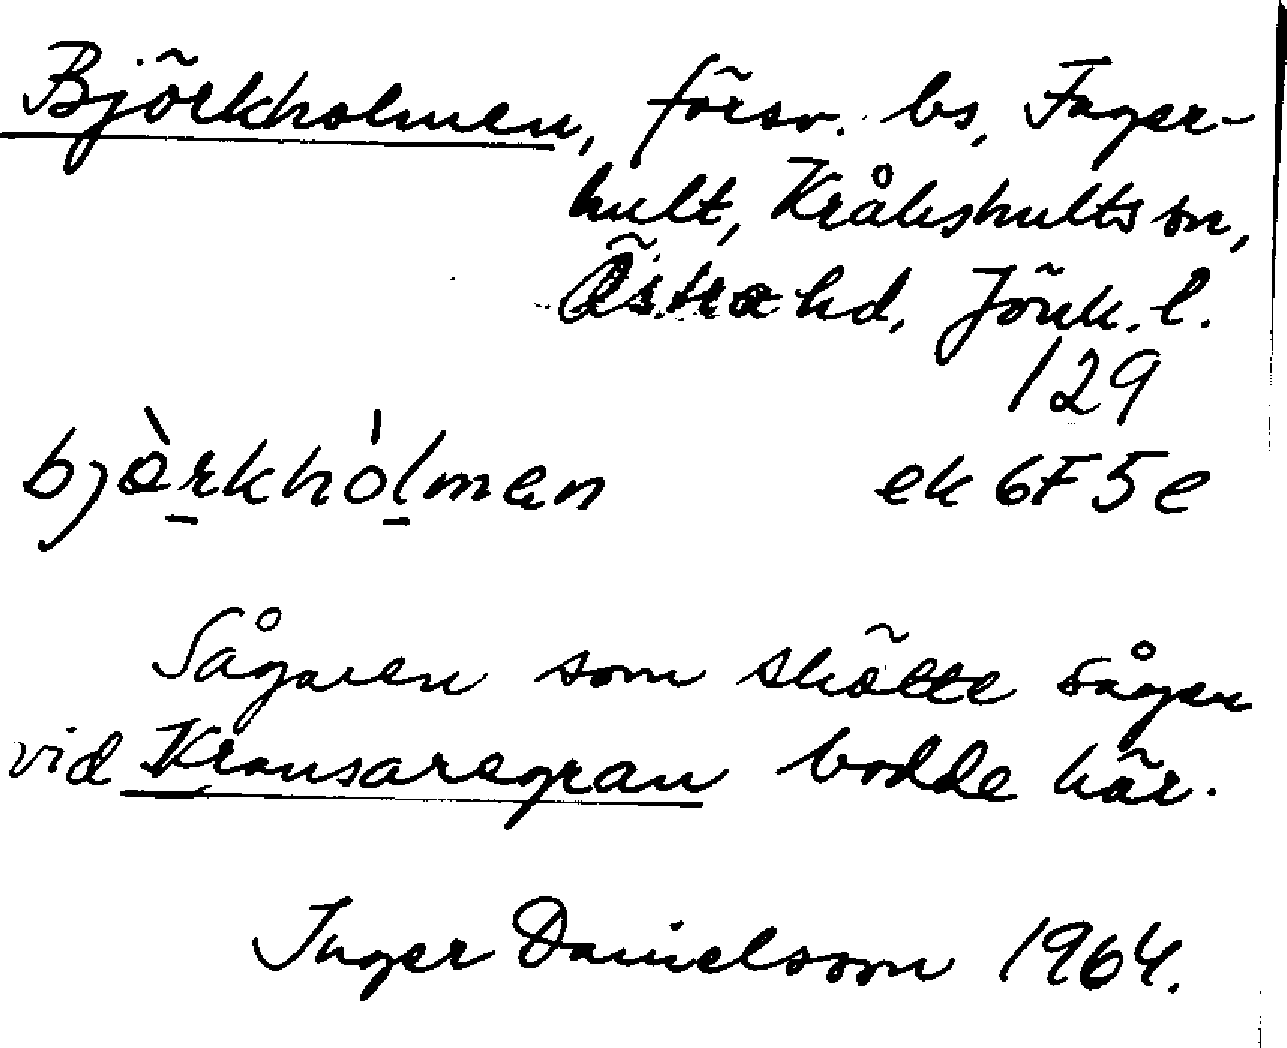 Björkholmen, försv. bs, Fager-
hult, Kråkshults sn,
Östra hd, Jönk. l.
129
bjòrkhólmen ek 6F5e
Sågaren som skötte sågen
vid Kransaregran bodde här.
Inger Danielsson 1964.